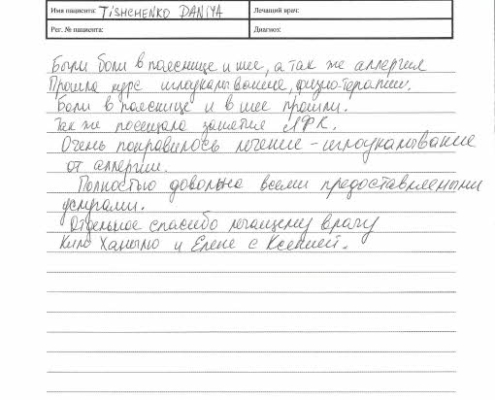 Имя пациента: TISHCHENKO DANIYA Лечащий врач:
Рег. № пациента: Диагноз:
Были боли в пояснице и шее, а так же аллергия
Прошла курс иглоукалывания, физиотерапии.
Боли в пояснице и в шее прошли.
Так же посещала занятия ЛФК.
Очень понравилось лечение - иглоукалывание
от аллергии.
Полностью довольна всеми предоставляемыми
услугами.
Отдельное спасибо лечащему врачу
Ким Ханылю и Елене с Ксенией.